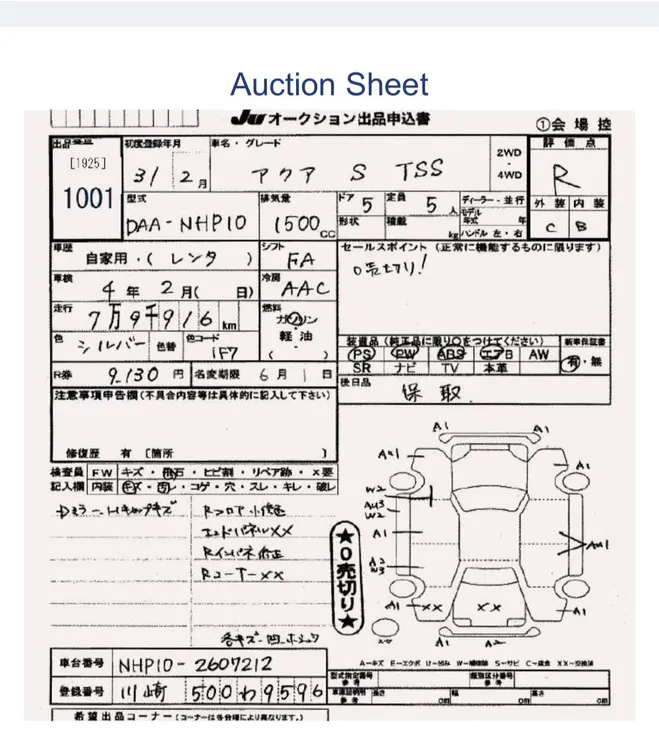 Auction Sheet
Ju オークション出品申込書
①会場控
出品番号 初度登録年月 車名・グレード 2WD・4WD 評価点
[1925]
1001
31 2月 アクア S TSS R
型式 排気量 ドア 5 定員 5人 ディーラー・並行 外装 内装
DAA-NHP10 1500cc 形状 積載 kg モデル年式 年 C B
ハンドル 左・右
車歴 シフト セールスポイント(正常に機能するものに限ります)
自家用・(レンタ) FA 0売切り!
車検 冷房
4年 2月( 日) AAC
走行 燃料
7万9千916km ガソリン
軽油
( )
色 シルバー 色替 色コード 1F7
装置品(純正品に限り○をつけてください) 新車保証書
PS PW ABS エアB AW 有・無
SR ナビ TV 本革
R券 9,130円 名変期限 6月1日 後日品
保 取
注意事項申告欄(不具合内容等は具体的に記入して下さい)
修復歴 有 [箇所 ]
検査員 FW キズ・飛石・ヒビ割・リペア跡・X要
記入欄 内装 キズ・凹・コゲ・穴・スレ・キレ・破レ
Rフロア小修正
エンドパネルXX
Rインパネ修正
★0売切り★
A1 A1
A1 A1
W2
Au3
W2
A1 Au1
A2
W3
A1 XX XX A1
A1 A2
A-キズ E-エクボ U-凹み W-補修跡 S-サビ C-腐食 XX-交換済
車台番号 NHP10-2607212
型式指定番号 参考 類別区分番号 参考
登録番号 川崎 500 わ 9596
車庫証明用 参考 長さ cm 幅 cm 高さ cm
希望出品コーナー(コーナーは各会場により異なります。)